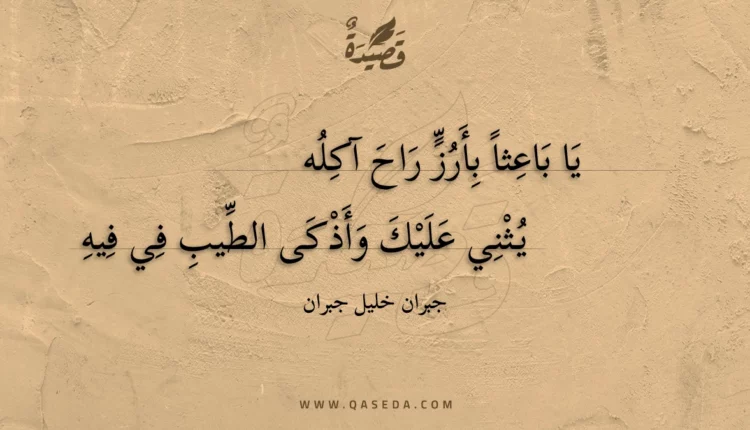 قَصِيدَةٌ
يَا بَاعِثاً بِأَرُزٍّ رَاحَ آكِلُه
يُثْنِي عَلَيْكَ وَأَذْكَى الطِّيبِ فِي فِيهِ
جبران خليل جبران
WWW.QASEDA.COM